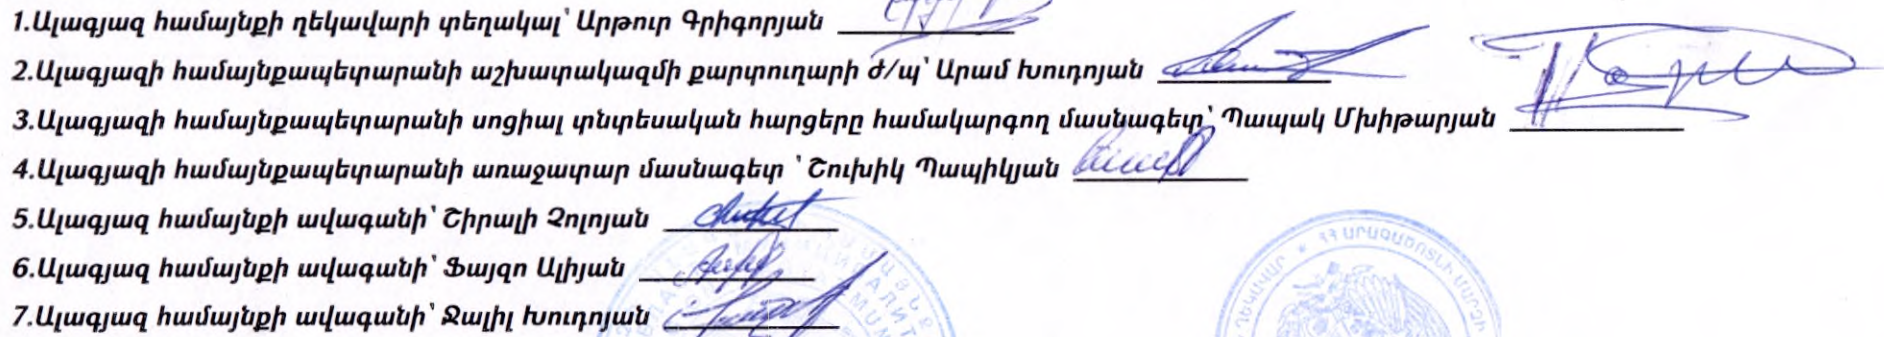 1.Ալագյազ համայնքի ղեկավարի տեղակալ՝ Արթուր Գրիգորյան
2.Ալագյազի համայնքապետարանի աշխատակազմի քարտուղարի ժ/պ՝ Արամ Խուդոյան
3.Ալագյազի համայնքապետարանի սոցիալ տնտեսական հարցերը համակարգող մասնագետ՝ Պապակ Մխիթարյան
4.Ալագյազի համայնքապետարանի առաջատար մասնագետ ՝ Շուխիկ Պապիկյան
5.Ալագյազ համայնքի ավագանի՝ Շիրալի Չոլոյան
6.Ալագյազ համայնքի ավագանի՝ Ֆայզո Ալիյան
7.Ալագյազ համայնքի ավագանի՝ Ջալիլ Խուդոյան
ՂԵԿԱՎԱՐ * ՀՀ ԱՐԱԳԱԾՈՏՆԻ ՄԱՐԶԻ